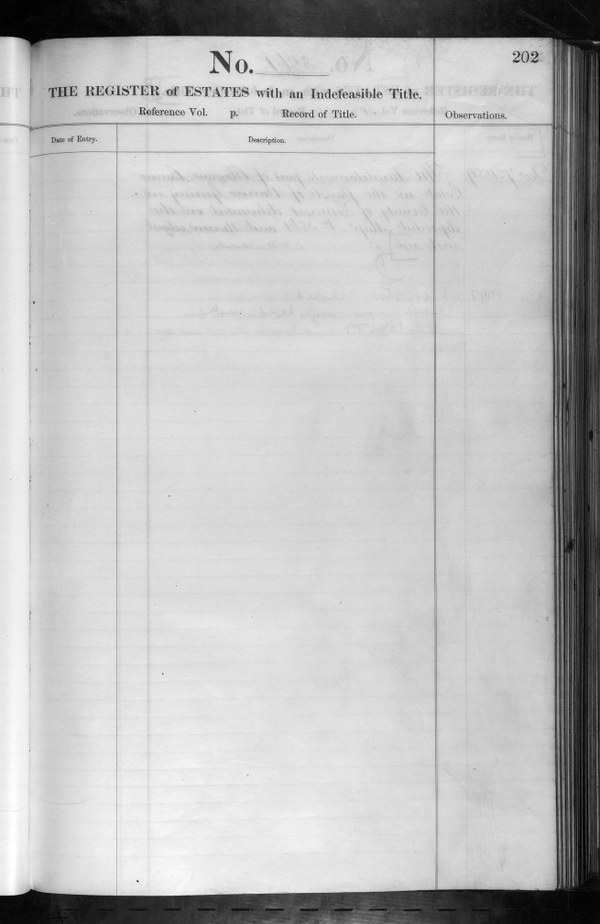 No.
202
THE REGISTER of ESTATES with an Indefeasible Title.
Reference Vol. p. Record of Title.
Observations.
Date of Entry.
Description.